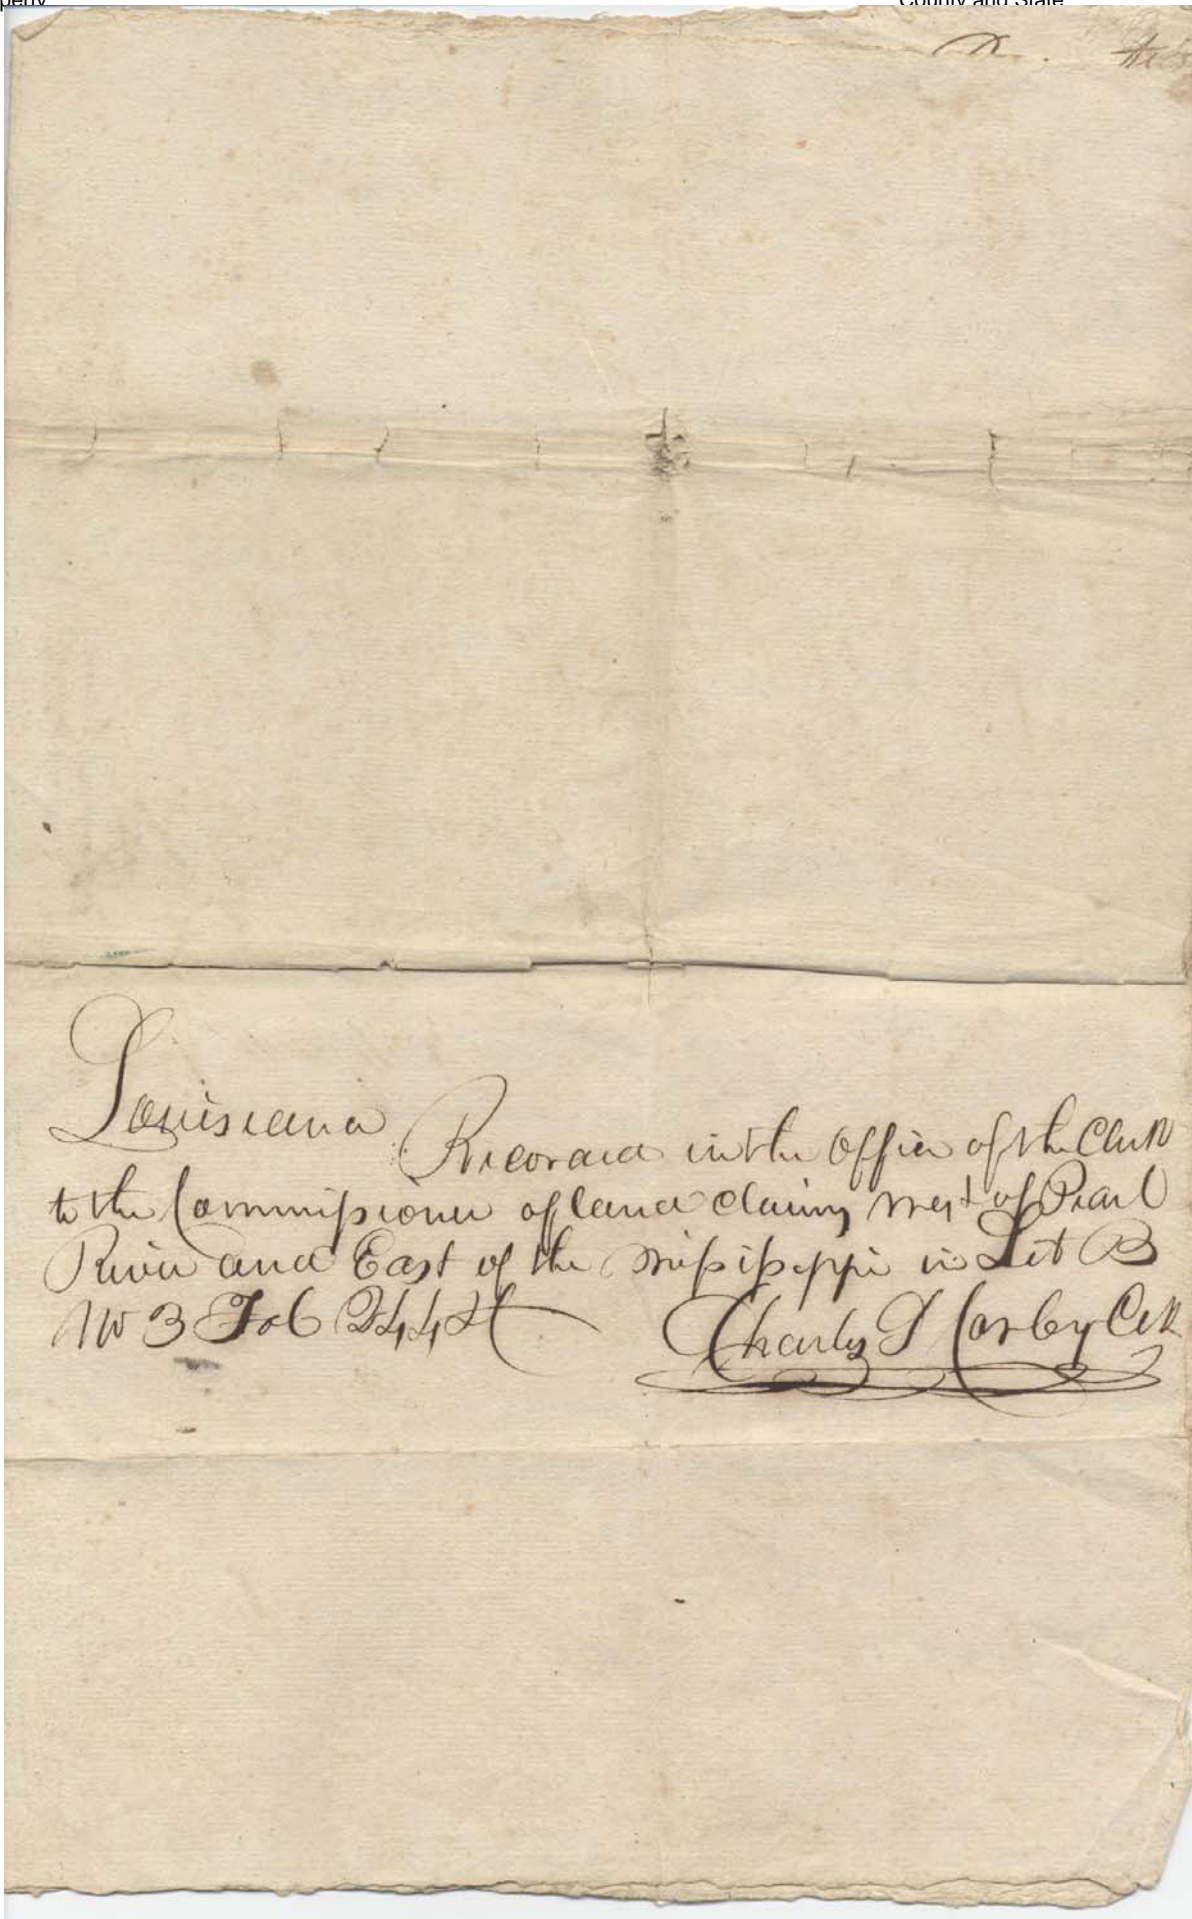 County and State
Louisiana
Recorded in the Office of the Clerk
to the Commissioner of land claims West of Pearl
River and East of the Missisippi in Let B
No 3 Fol 244
Charles S Cosby Clk